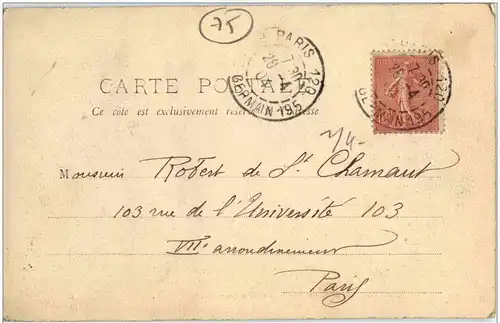 75
PARIS 120
7 30
29 - 4
04
Bᴅ Sᵗ GERMAIN 195
CARTE POSTALE
Ce côté est exclusivement réservé à l'adresse
Monsieur Robert de St Chamant
103 rue de l'Université 103
VIIe arrondissement
Paris